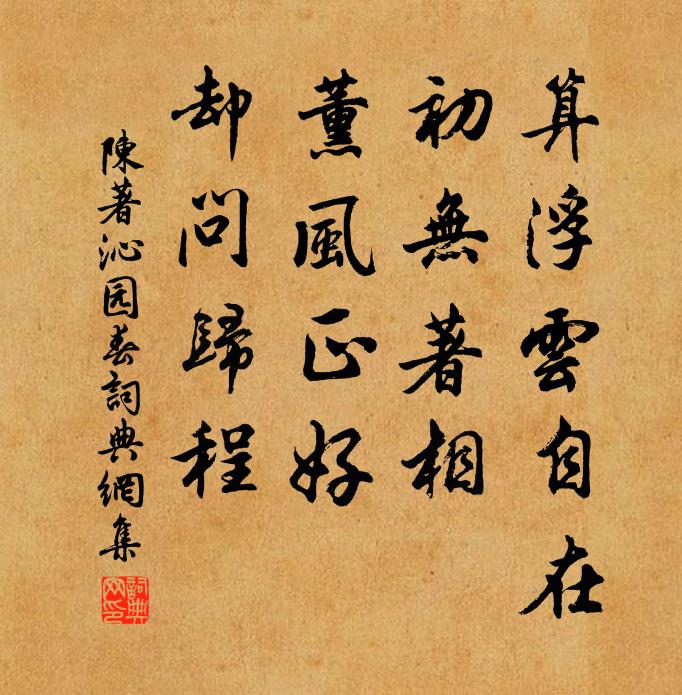 算浮雲自在
初無著相
薰風正好
却問歸程
陳著沁园春詞典網集
詞典网印